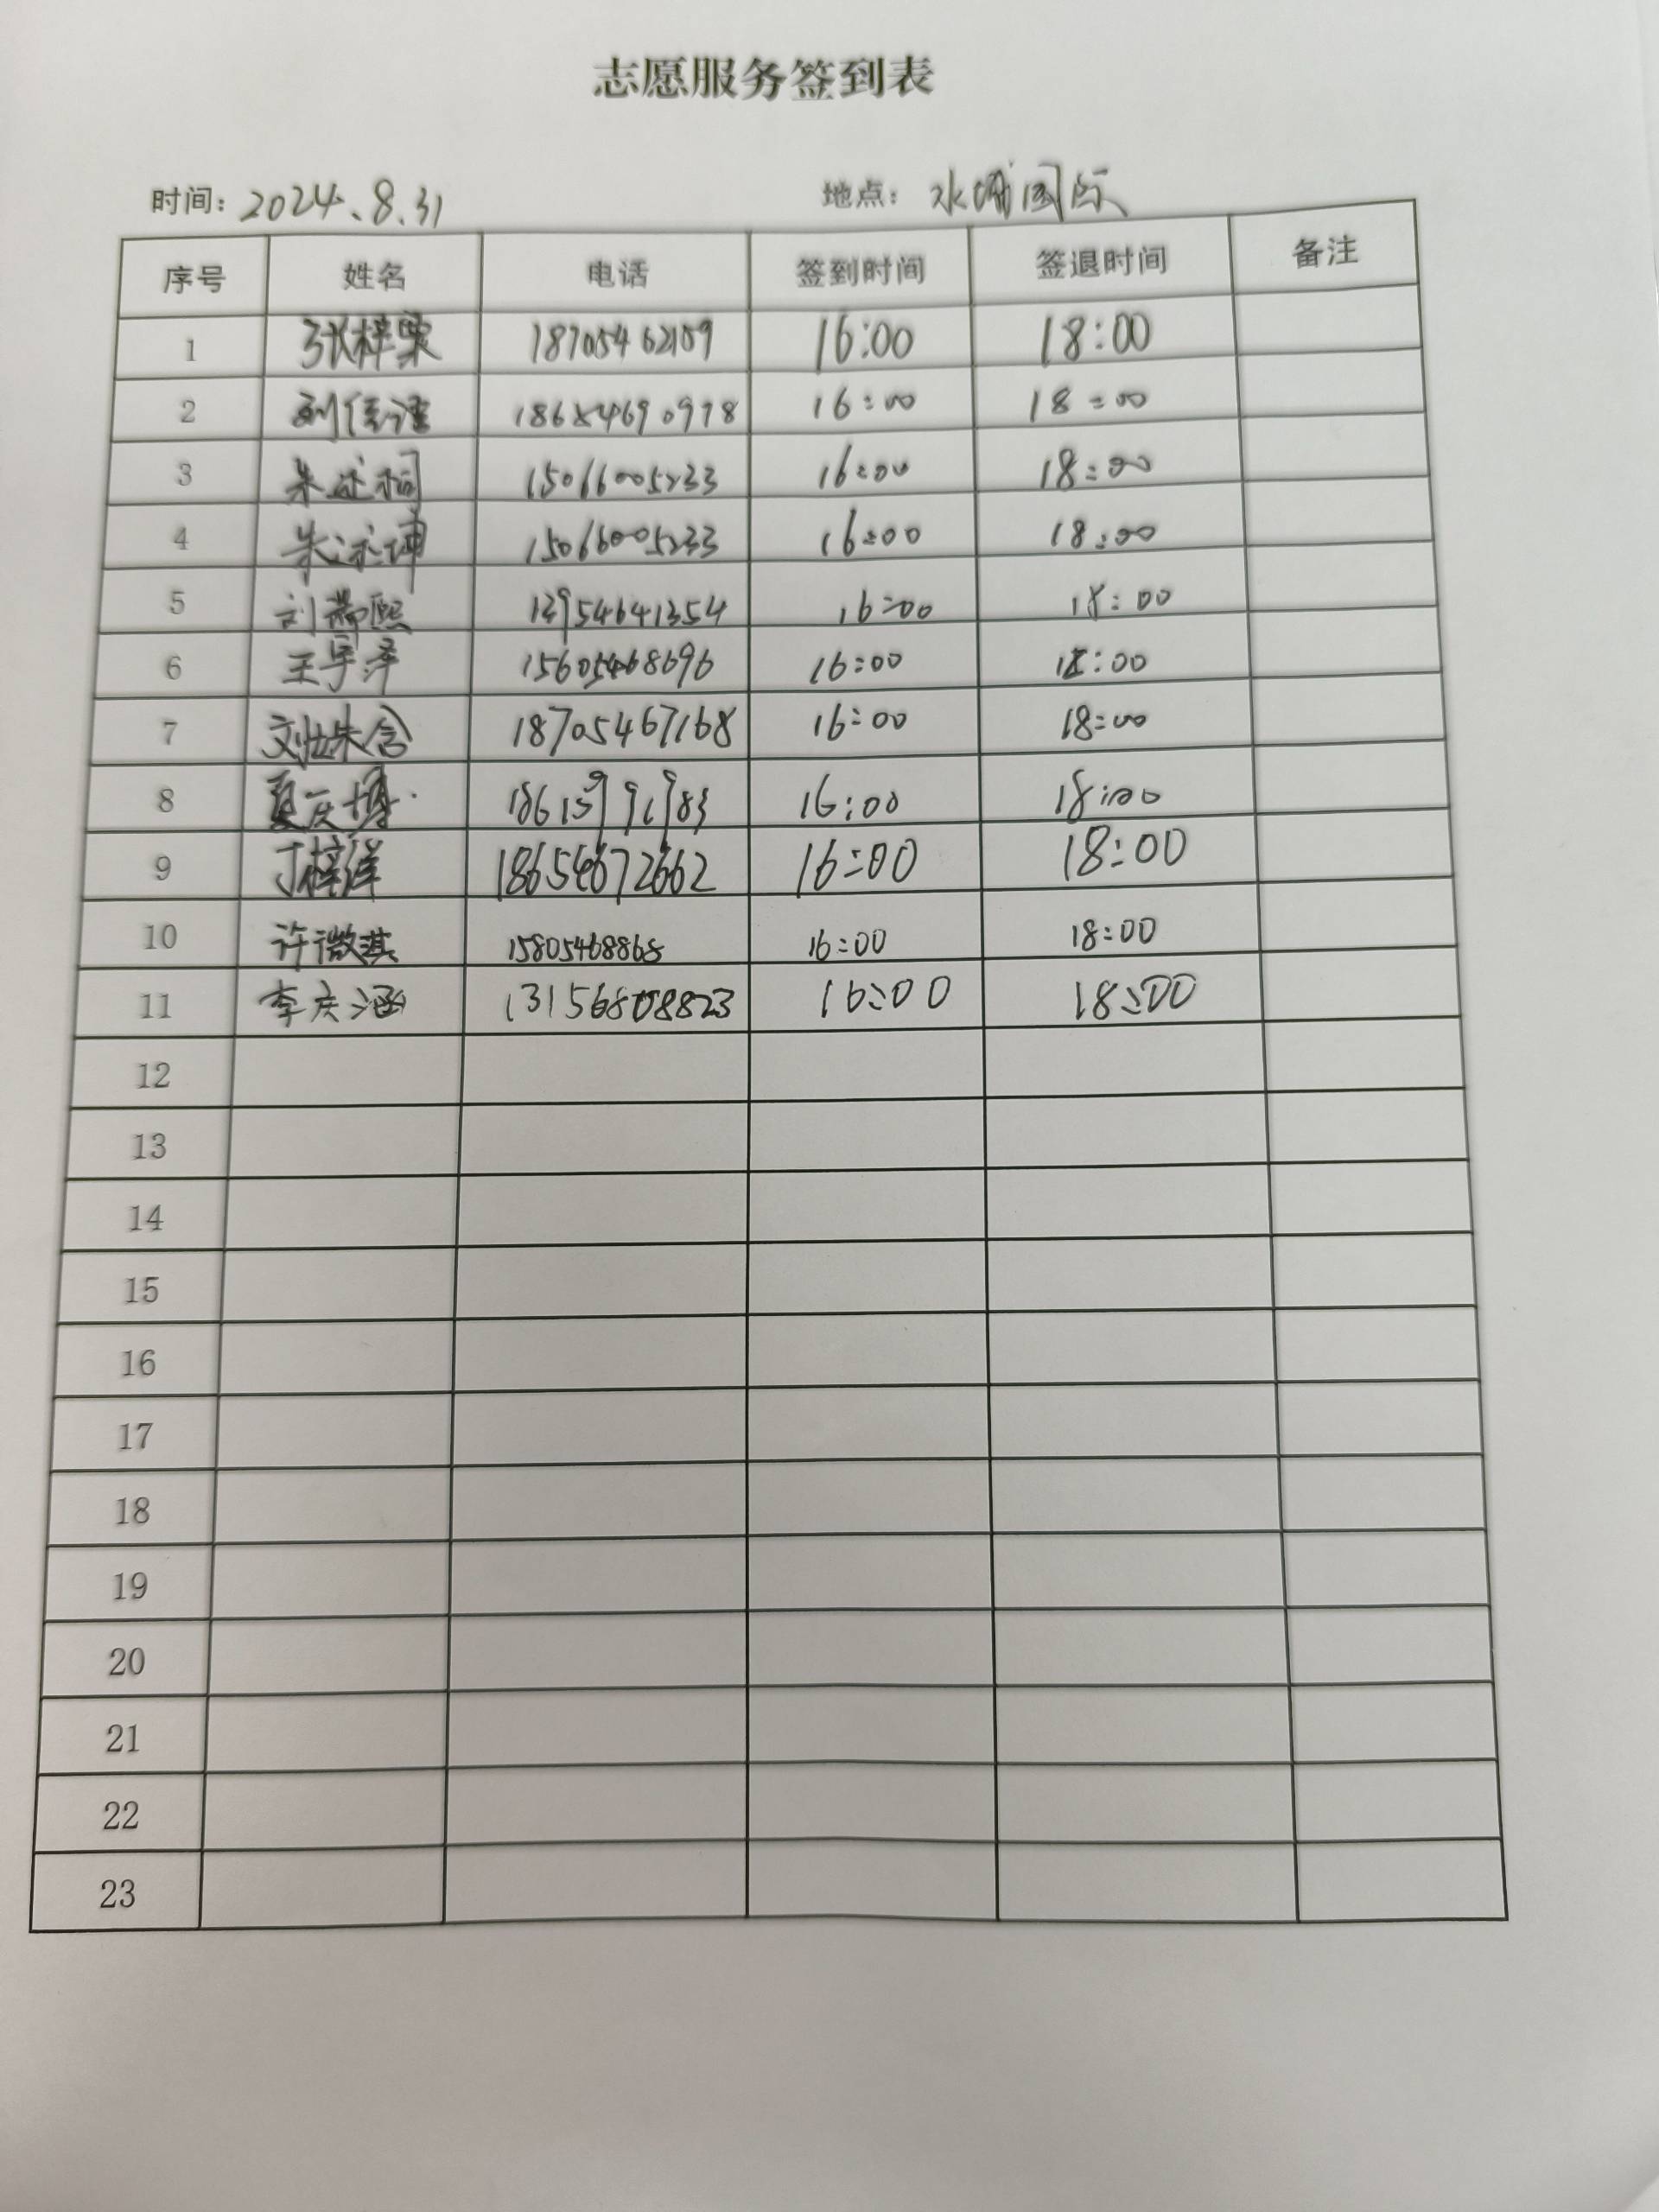 志愿服务签到表
时间: 2024.8.31 地点: 水城国际
序号 姓名 电话 签到时间 签退时间 备注
1 张梓栗 18705462109 16:00 18:00
2 16:00 18:00
3 15066005233 16:00 18:00
4 15066005233 16:00 18:00
5 刘 熙 13954641354 16:00 18:00
6 王宇泽 15605468696 16:00 18:00
7 刘姝含 18705467168 16:00 18:00
8 夏庆博 16:00 18:00
9 丁梓洋 18654672662 16:00 18:00
10 许微淇 15805468868 16:00 18:00
11 李庆涵 13156808823 16:00 18:00
12
13
14
15
16
17
18
19
20
21
22
23